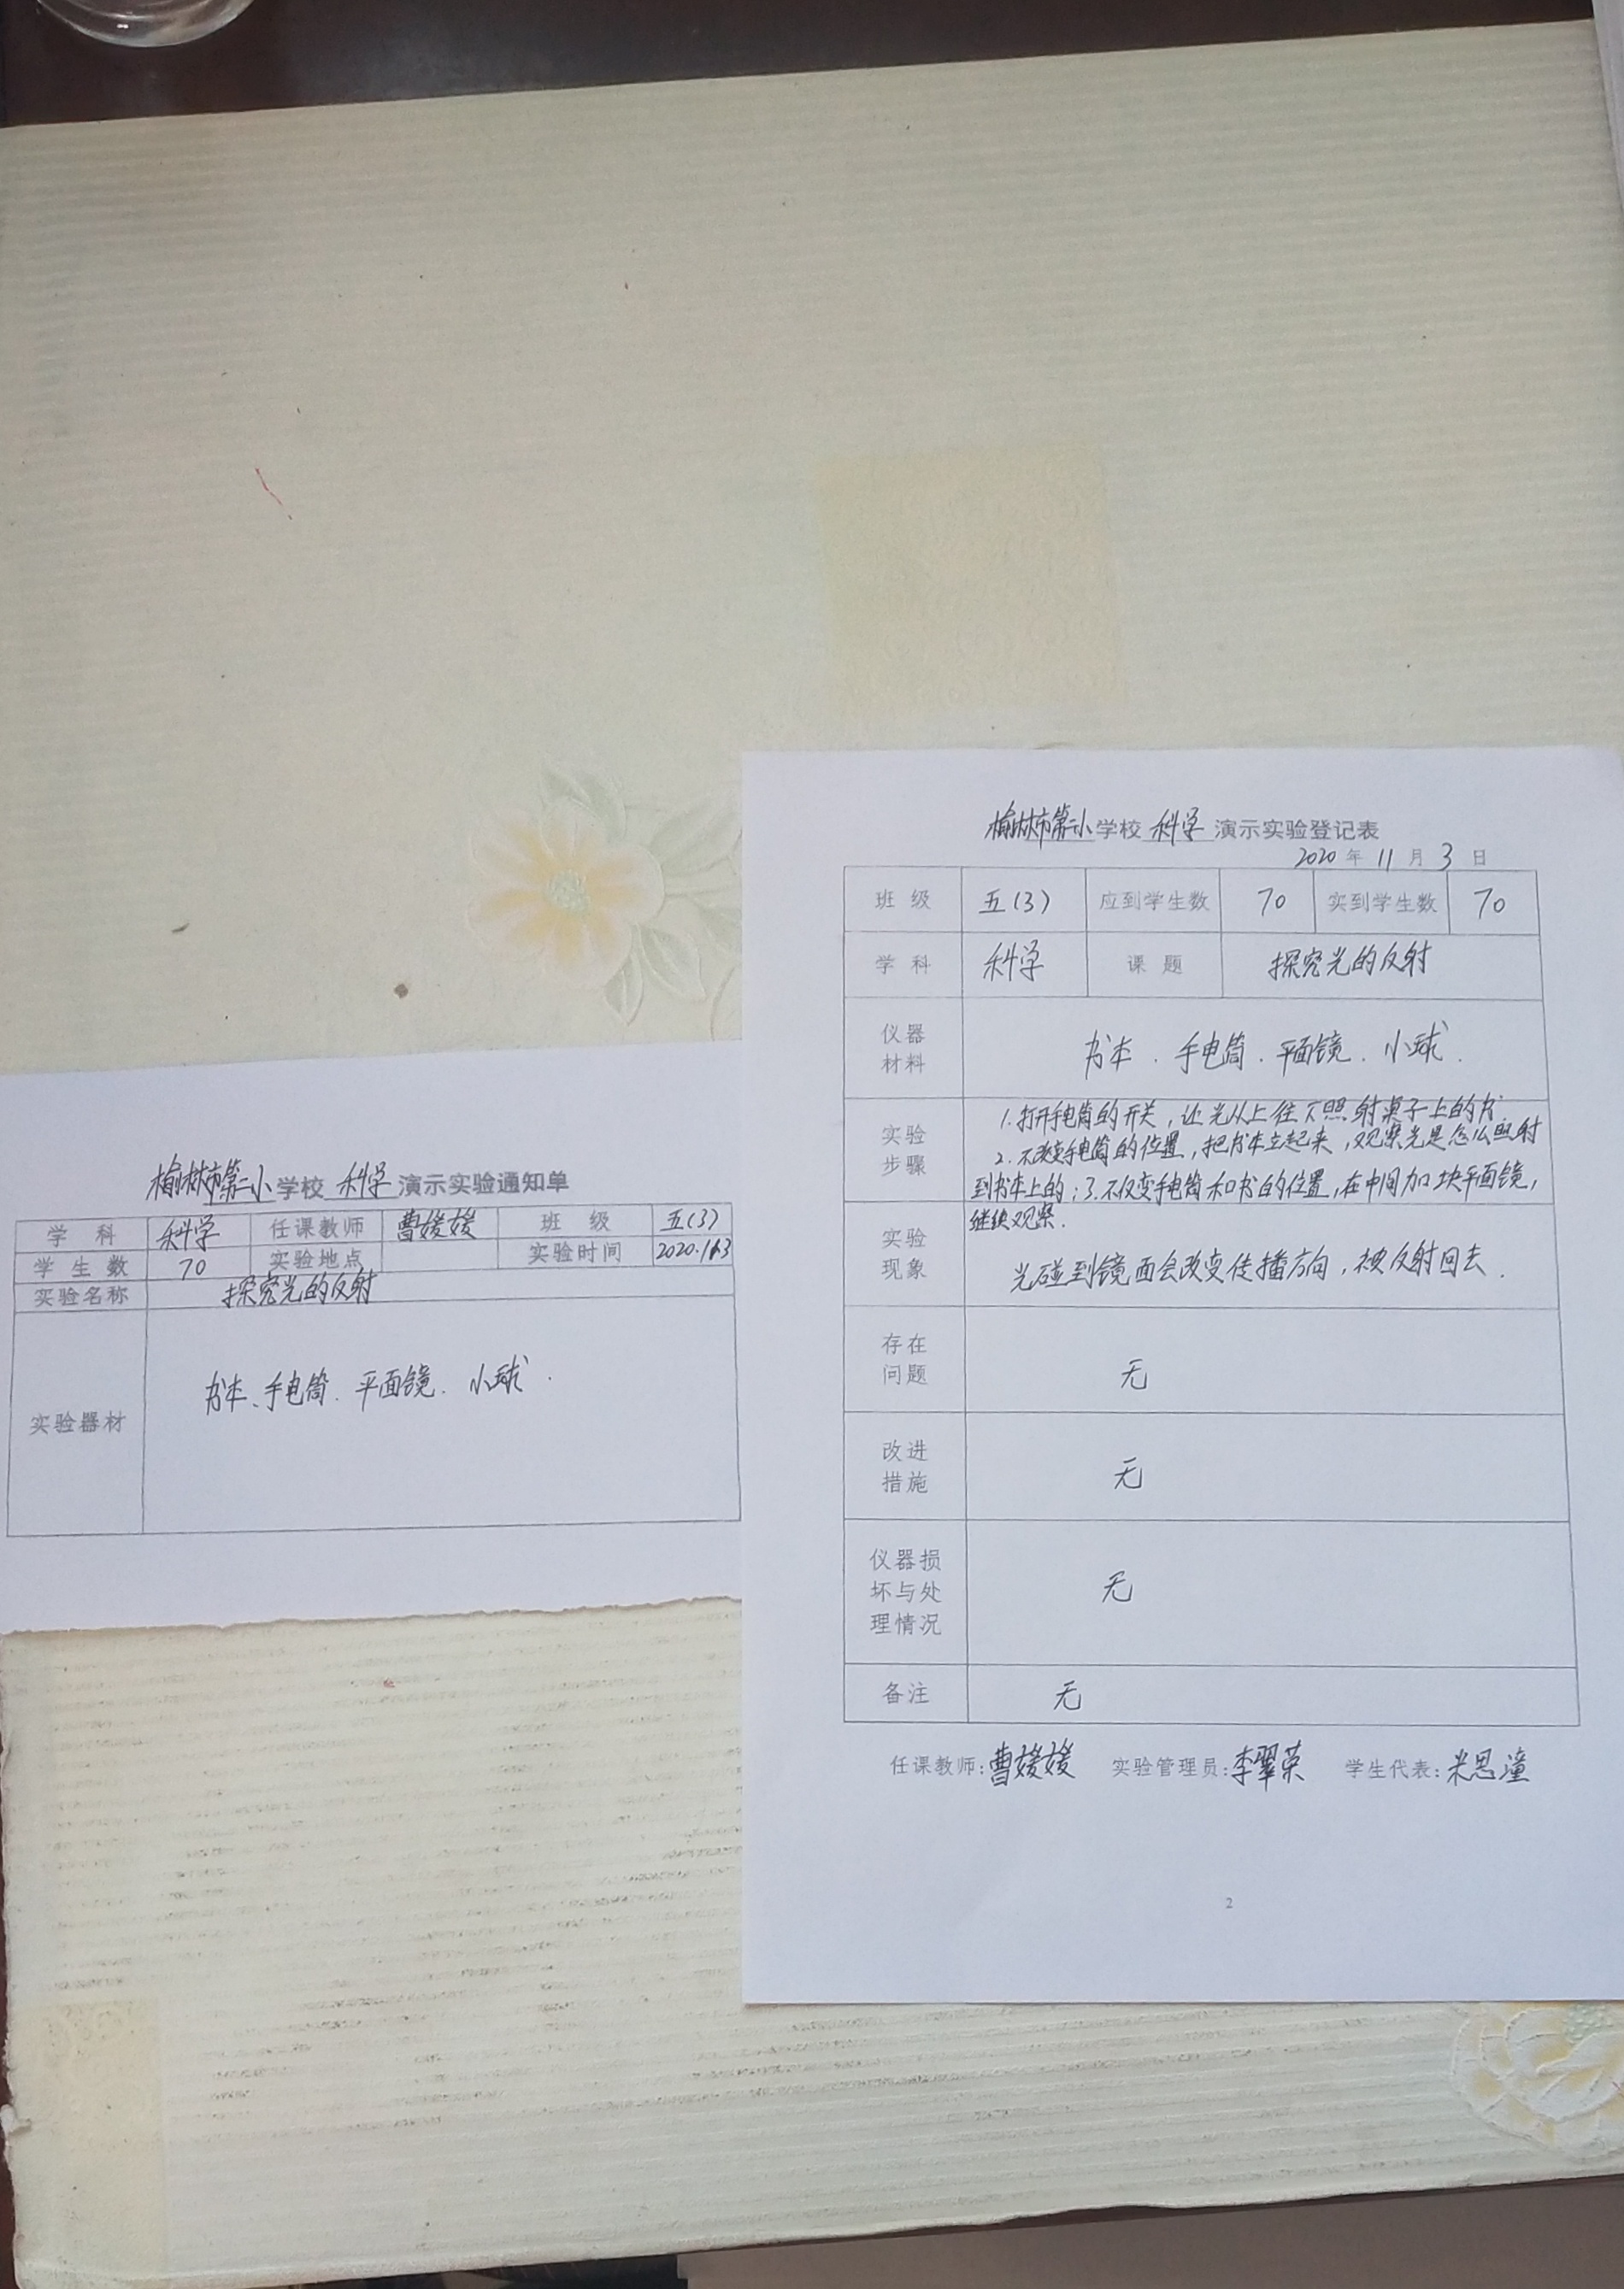 榆林市第二小学校 科学 演示实验通知单
学 科 科学 任课教师 曹媛媛 班 级 五(3)
学 生 数 70 实验地点 实验时间 2020.11.3
实验名称 探究光的反射
实验器材 书本、手电筒.平面镜.小球.
榆林市第二小学校 科学 演示实验登记表
2020 年 11 月 3 日
班 级 五(3) 应到学生数 70 实到学生数 70
学 科 科学 课 题 探究光的反射
仪器
材料
书本.手电筒.平面镜.小球.
实验
步骤
1.打开手电筒的开关,让光从上往下照射桌子上的书
2.不改变手电筒的位置,把书本立起来,观察光是怎么照射
到书本上的;3.不仅变手电筒和书的位置,在中间加块平面镜,
继续观察.
实验
现象
光碰到镜面会改变传播方向,被反射回去.
存在
问题
无
改进
措施
无
仪器损
坏与处
理情况
无
备注 无
任课教师:曹媛媛 实验管理员:李翠荣 学生代表:米思潼
2